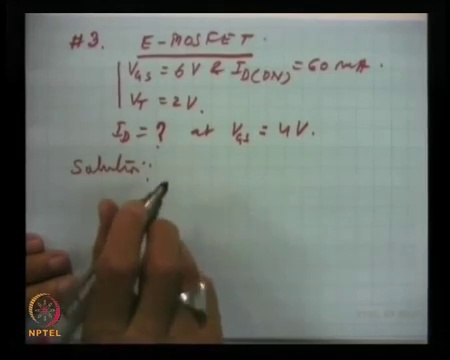 #3. E-MOSFET.
V_GS = 6V & I_D(ON) = 60 mA.
V_T = 2V.
I_D = ? at V_GS = 4V.
Solution:
NPTEL